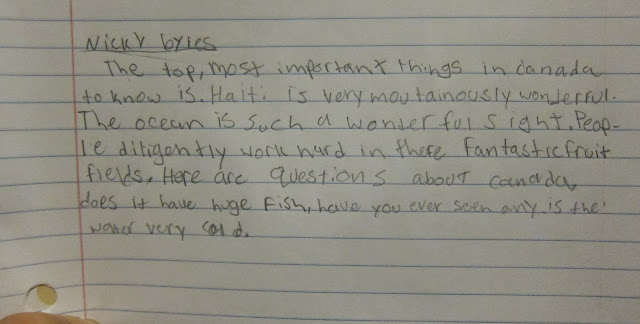 Nicky byles
The top, most important things in canada
to know is. Haiti is very moutainously wonderful.
The ocean is such a wonderful sight. Peop-
le diligently work hard in there fantastic fruit
fields. Here are questions about canada,
does it have huge Fish, have you ever seen any. is the
water very cold.